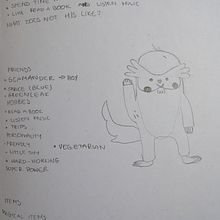 • SPEND TIME
• LIKE READ A BOOK AND LISTEN MUSIC
WHAT DOES NOT HIS LIKE?
FRIENDS
• SCAMANDER → BOY
• SPACE (BLUE)
• GREENLEAF
HOBBIES
• READ A BOOK
• LISTEN MUSIC
• TRIPS
PERSONALITY
• FRIENDLY
• VEGETARIAN
• LITTLE SHY
• HARD-WORKING
SUPER POWER
ITEMS
MAGICAL ITEMS